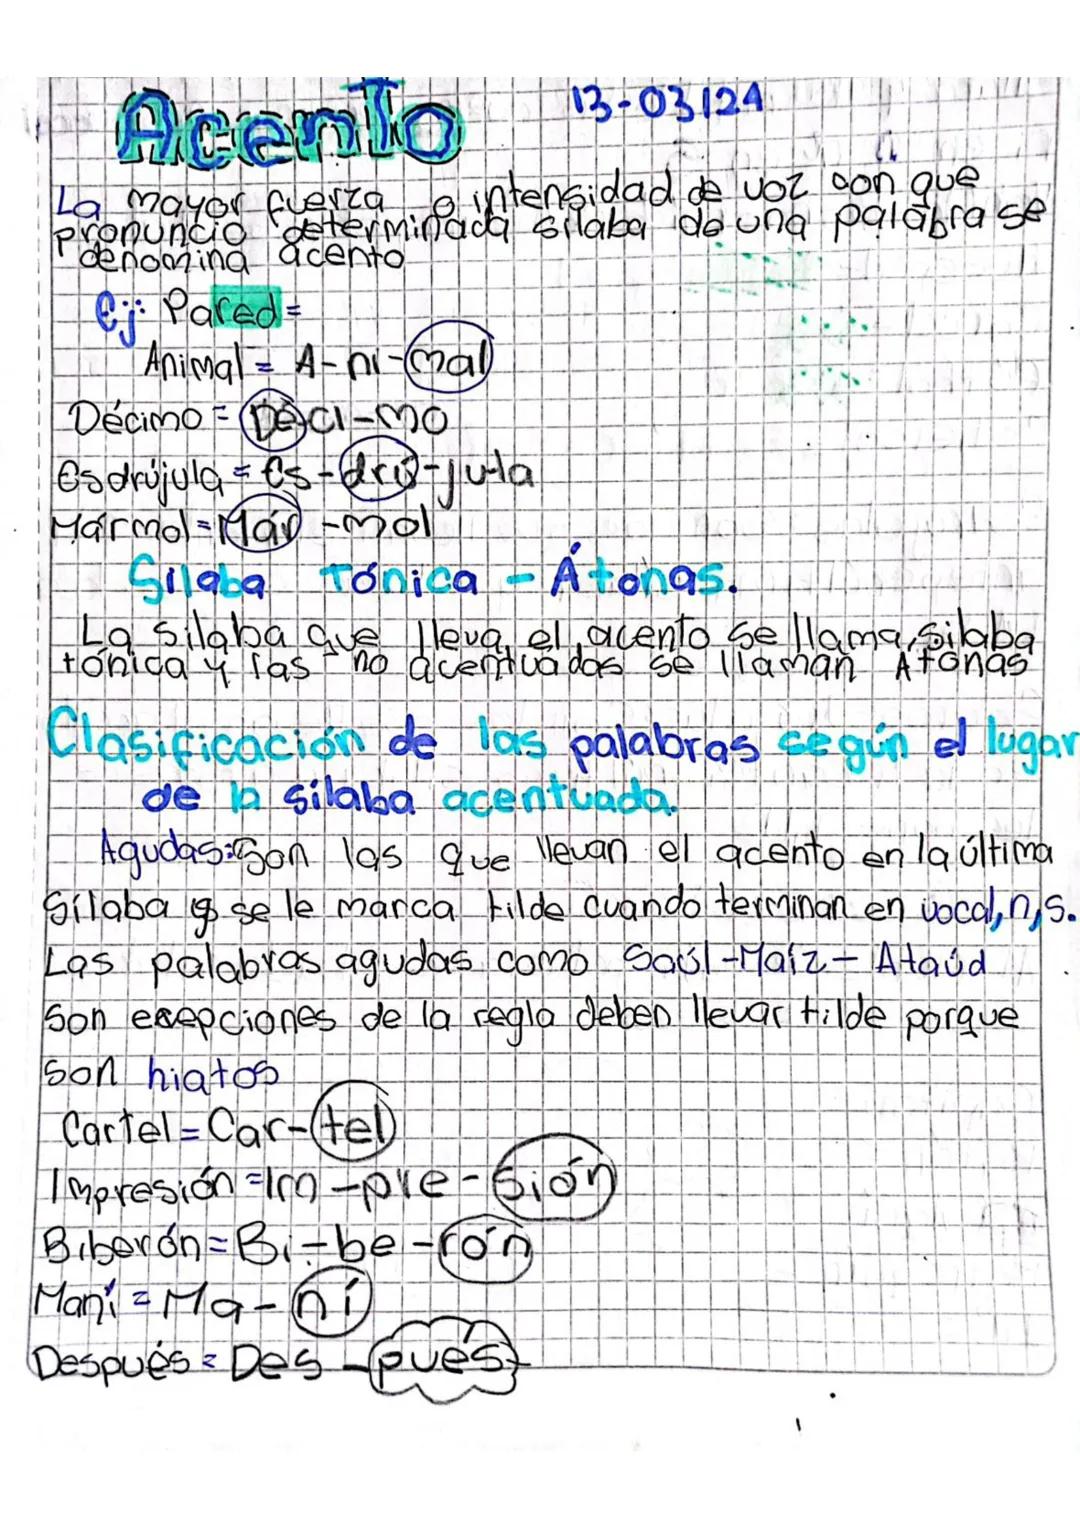 Acento 13-03/24
La mayor fuerza o intensidad de voz con que
pronuncio determinada silaba de una palabra se
denomina acento
Ej: Pared =
Animal = A-ni-mal
Décimo = Dé ci-mo
Esdrújula = es-drú-jula
Mármol = Már -mol
Silaba Tónica - Átonas.
La silaba que lleva el acento se llama silaba
tónica y las no acentuadas se llaman Atonas
Clasificación de las palabras según el lugar
de la sílaba acentuada.
Agudas: Son las que llevan el acento en la última
Sílaba y se le marca tilde cuando terminan en vocal, n, s.
Las palabras agudas como Saúl-Maíz-Ataúd
Son exepciones de la regla deben llevar tilde porque
son hiatos
Cartel = Car-tel
Impresión = Im-pre-sión
Biberón = Bi-be-rón
Maní = Ma-ní
Después = Des-pués